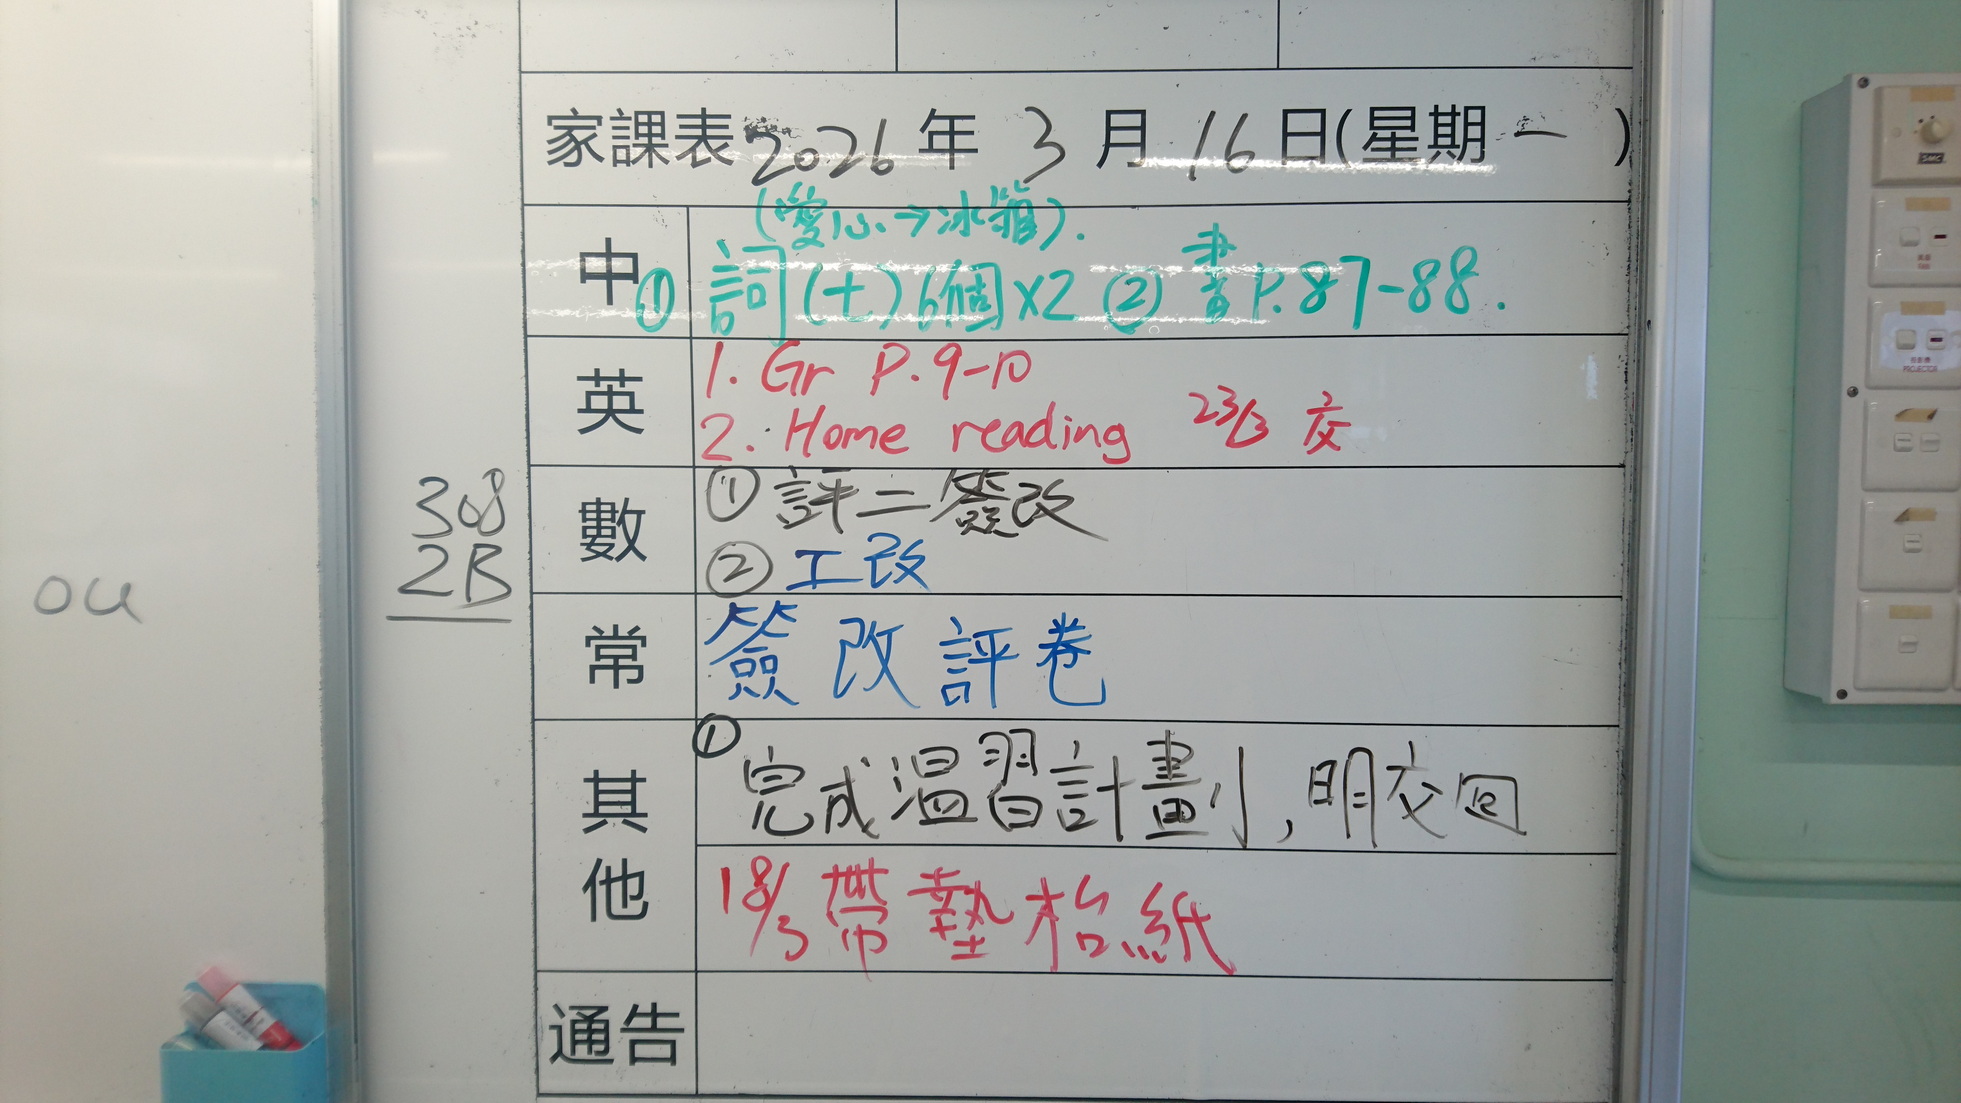 家課表 2026 年 3 月 16 日(星期一)
(愛心→冰箱).
中 ① 詞(七)6個x2 ② 書P.87-88.
英 1. Gr P.9-10
2. Home reading 23/3 交
數 ① 評二簽改
② 工改
常 簽改評卷
其他 ① 完成溫習計劃, 明交回
18/3 帶墊枱紙
通告
308
2B
ou